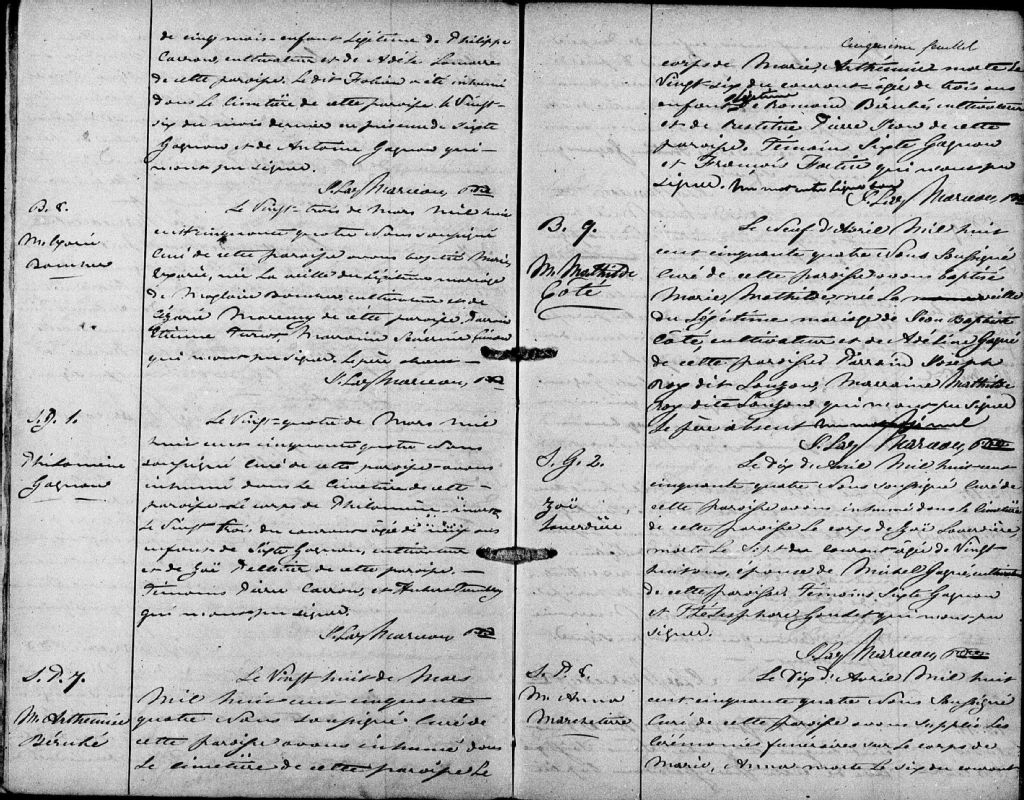 de cinq mois enfant légitime de Philippe
Carron, cultivateur et de Adèle
de cette paroisse. Le dit a été inhumé
dans le cimetière de cette paroisse le Vingt-
six du mois dernier en présence de Sixte
Gagnon et de Antoine Gagnon qui
n'ont pu signer.
Marceau, Ptre
B. 8.
M.
Le Vingt-trois de Mars Mil huit
cent cinquante quatre Nous soussigné
Curé de cette paroisse avons baptisé Marie,
née la veille du légitime mariage
de cultivateur et de
de cette paroisse. Parrain
Etienne Marraine Séverine
qui n'ont pu signer, le père absent
Marceau, Ptre
S. 1.
Philomène
Gagnon
Le Vingt-quatre de Mars mil
huit cent cinquante quatre Nous
soussigné Curé de cette paroisse avons
inhumé dans le Cimetière de cette
paroisse le corps de Philomène morte
le Vingt trois du courant âgée de
enfant de Sixte Gagnon, cultivateur
et de Zoé Pelletier de cette paroisse.
Témoins Pierre Carron, et
qui n'ont pu signer.
Marceau, Ptre
S. P. 7.
M. Arthémise
Bérubé
Le Vingt huit de Mars
Mil huit cent cinquante
quatre Nous soussigné Curé de
cette paroisse avons inhumé dans
le cimetière de cette paroisse le
Cinquième feuillet
corps de Marie, Arthémise morte le
Vingt-six du courant âgée de trois ans
enfant légitime de Romain Bérubé cultivateur
et de Restitue Pierre Jean de cette
paroisse. Témoins Sixte Gagnon
et François qui n'ont pu
signer. Un mot entre ligne bon
Marceau, Ptre
B. 9.
M. Mathilde
Côté
Le Neuf d'Avril Mil huit
cent cinquante quatre Nous Soussigné
Curé de cette paroisse avons baptisé
Marie, Mathilde, née la veille
du légitime mariage de Jean Baptiste
Côté, cultivateur et de Adéline Gagné
de cette paroisse. Parrain Joseph
Roy dit Lauzon, Marraine Mathilde
Roy dite Lauzon qui n'ont pu signer
le père absent
Marceau, Ptre
S. G. 2.
Zoé
Laverdière
Le Dix d'Avril Mil huit cent
cinquante quatre Nous soussigné Curé de
cette paroisse avons inhumé dans le Cimetière
de cette paroisse le corps de Zoé Laverdière,
morte le Sept du courant âgée de Vingt
huit ans, épouse de Michel Gagné, cultivateur
de cette paroisse. Témoins Sixte Gagnon
et Thélesphore qui n'ont pu
signer.
Marceau, Ptre
S. P. 8.
M. Anna
Marceterre
Le Dix d'Avril Mil huit
cent cinquante quatre Nous Soussigné
Curé de cette paroisse avons suppléé les
Cérémonies funéraires sur le corps de
Marie, Anna morte le six du courant